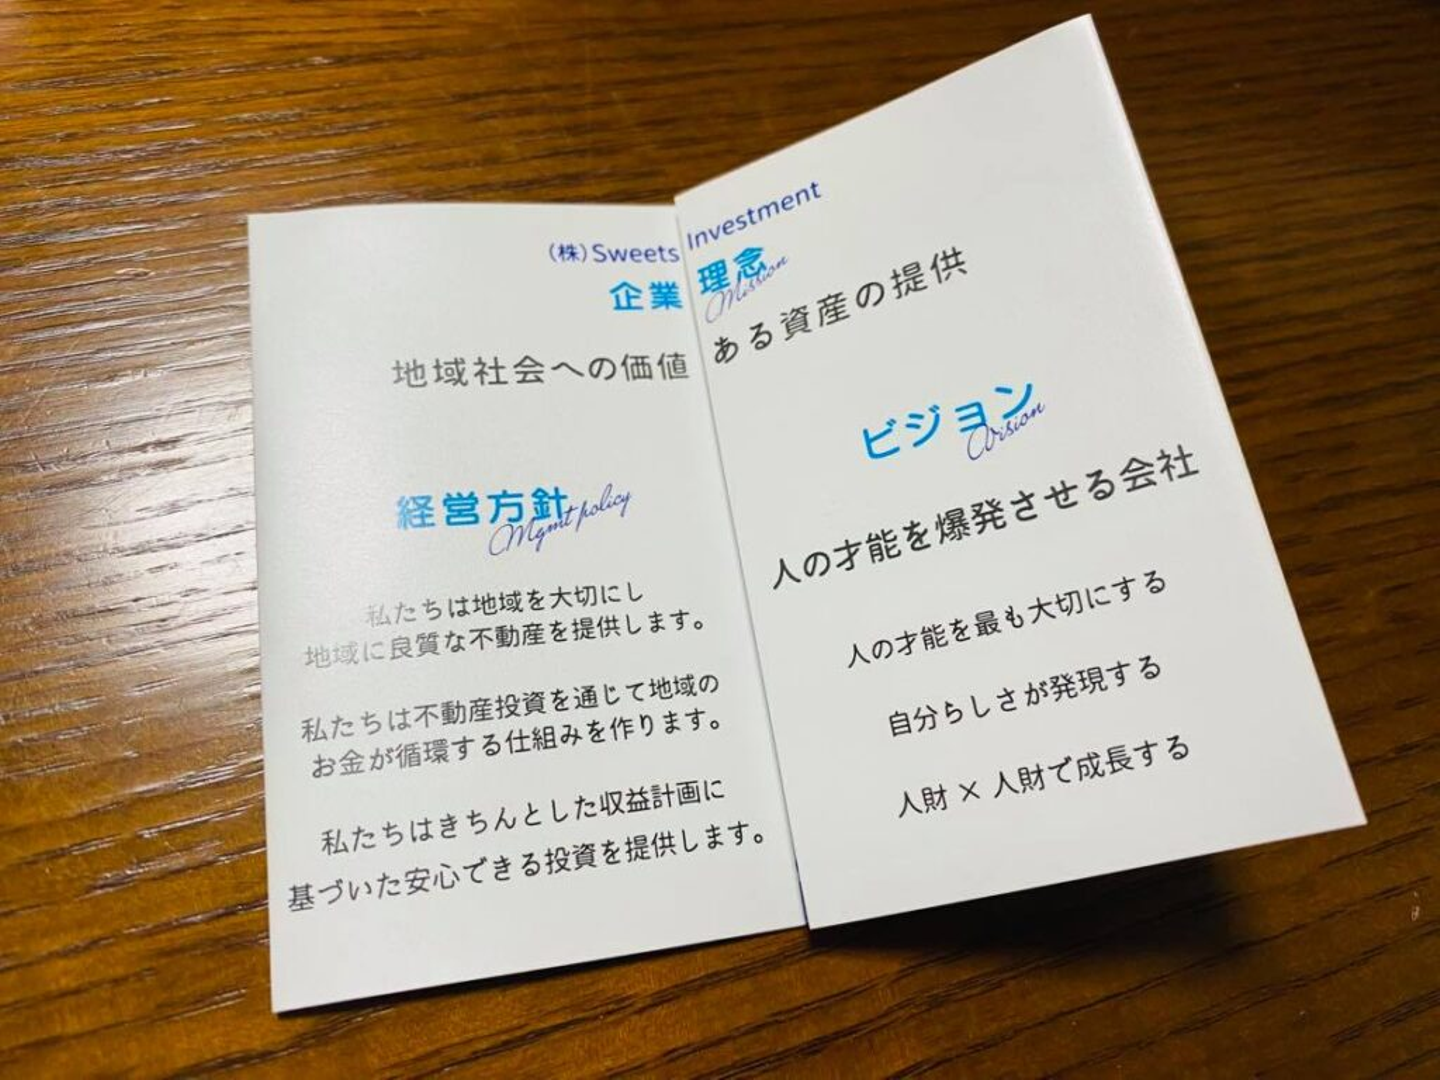 (株)Sweets Investment
企業理念
Mission
地域社会への価値ある資産の提供
経営方針
Mgmt policy
私たちは地域を大切にし
地域に良質な不動産を提供します。
私たちは不動産投資を通じて地域の
お金が循環する仕組みを作ります。
私たちはきちんとした収益計画に
基づいた安心できる投資を提供します。
ビジョン
Vision
人の才能を爆発させる会社
人の才能を最も大切にする
自分らしさが発現する
人財 × 人財で成長する